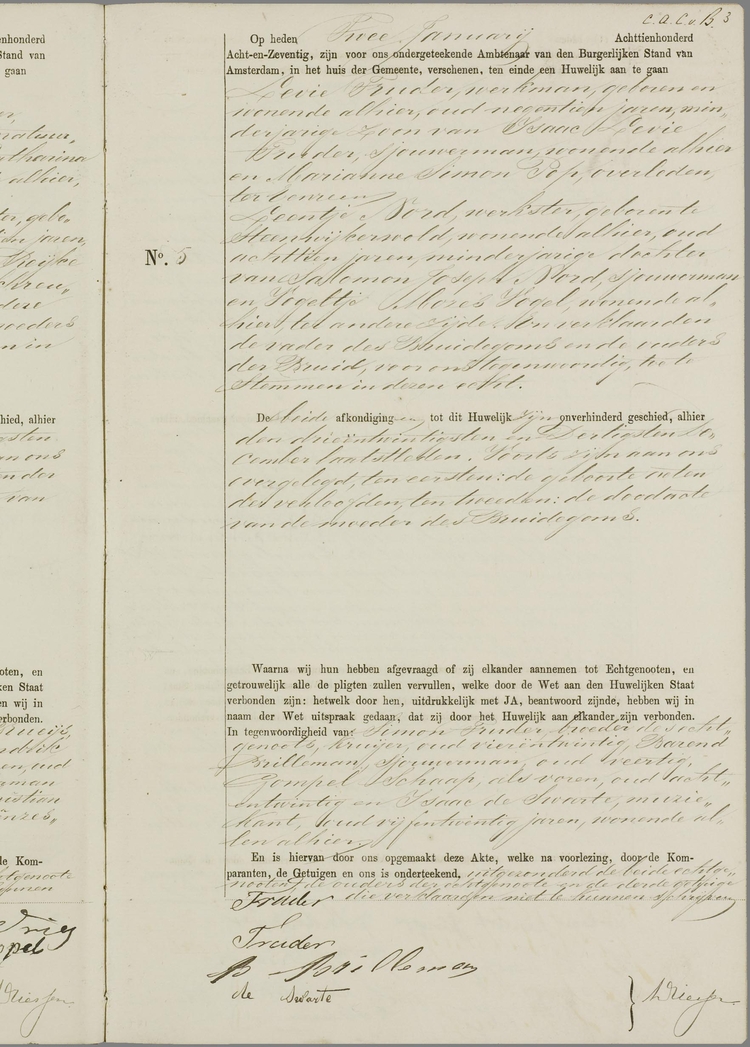 enhonderd
Stand van
gaan
alhier,
jaren,
moeders
n in
hied, alhier
an ons
van
oten, en
ken Staat
en wij in
erbonden.
le Kom-
pel
C.a.C.v.B 3
Op heden Twee Januarij Achttienhonderd
Acht-en-Zeventig, zijn voor ons ondergeteekende Ambtenaar van den Burgerlijken Stand van
Amsterdam, in het huis der Gemeente, verschenen, ten einde een Huwelijk aan te gaan
Levie Truder, werkman, geboren en
wonende alhier, oud negentien jaren, min„
derjarige zoon van Isaac Levie
Truder, sjouwerman, wonende alhier
en Marianne Simon Pop, overleden,
ter eenre en
Leentje Nord, werkster, geboren te
Steenwijkerwold, wonende alhier, oud
achttien jaren, minderjarige dochter
van Salomon Joseph Nord, sjouwerman
en Vogeltje Mozes Vogel, wonende al„
hier, ter andere zijde. En verklaarden
de vader des Bruidegoms en de ouders
der Bruid, voor ons tegenwoordig, toe te
stemmen in deren echt.
No. 5
De beide afkondigingen tot dit Huwelijk zijn onverhinderd geschied, alhier
den drieëntwintigsten en Dertigsten De„
cember laatstleden. Voorts zijn aan ons
overgelegd, ten eersten: de geboorte acten
der verloofden, ten tweeden: de doodacte
van de moeder des Bruidegoms.
Waarna wij hun hebben afgevraagd of zij elkander aannemen tot Echtgenooten, en
getrouwelijk alle de pligten zullen vervullen, welke door de Wet aan den Huwelijken Staat
verbonden zijn: hetwelk door hen, uitdrukkelijk met JA, beantwoord zijnde, hebben wij in
naam der Wet uitspraak gedaan, dat zij door het Huwelijk aan elkander zijn verbonden.
In tegenwoordigheid van: Simon Truder, broeder des echt„
genoots, kruijer, oud vierentwintig, Barend
Brilleman, sjouwerman, oud veertig,
Gompel Schaap, als voren, oud acht„
entwintig en Isaac de Swarte, muzie„
kant, oud vijfentwintig jaren, wonende al„
len alhier.
En is hiervan door ons opgemaakt deze Akte, welke na voorlezing, door de Kom-
paranten, de Getuigen en ons is onderteekend, uitgezonderd de beide echtge„
nooten, de ouders der echtgenoote en de derde getuige
die verklaarden niet te kunnen schrijven
Truder
Truder
B Brilleman
de Swarte